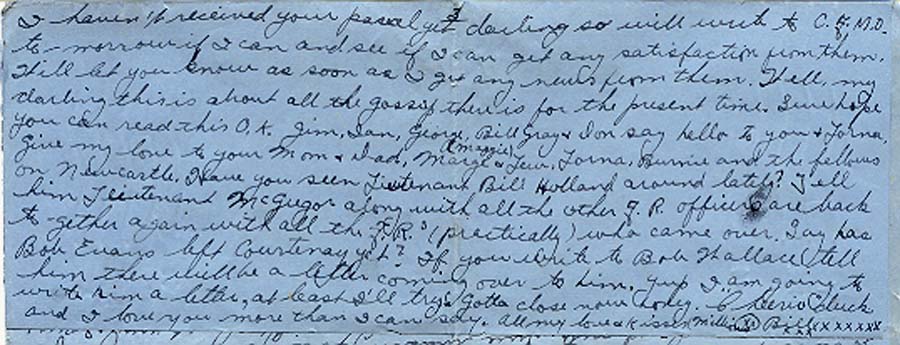 I haven't received your parcel yet darling so will write to C.P.M.O.
to-morrow if I can and see if I can get any satisfaction from them.
Will let you know as soon as I get any news from them. Well, my
darling this is about all the gossip there is for the present time. Sure hope
you can read this O.K. Jim, Ian, George, Bill Gray & Don say hello to you & Lorna.
Give my love to your Mom & Dad, Marge (Maggie) & Lew, Lorna, Burnie and the fellows
on Newcastle. Have you seen Lieutenant Bill Holland around lately? Tell
him Lieutenant McGugor along with all the other J.R. officers are back
to-gether again with all the J.R.s (practically) who came over. Say has
Bob Evans left Courtenay yet? If you write to Bob Wallace, tell
him there will be a letter coming over to him. Yup I am going to
write him a letter, at least I'll try. Gotta close now honey. Cheerio Chuck
and I love you more than I can say. All my love & kisses Bill xxxxxxx